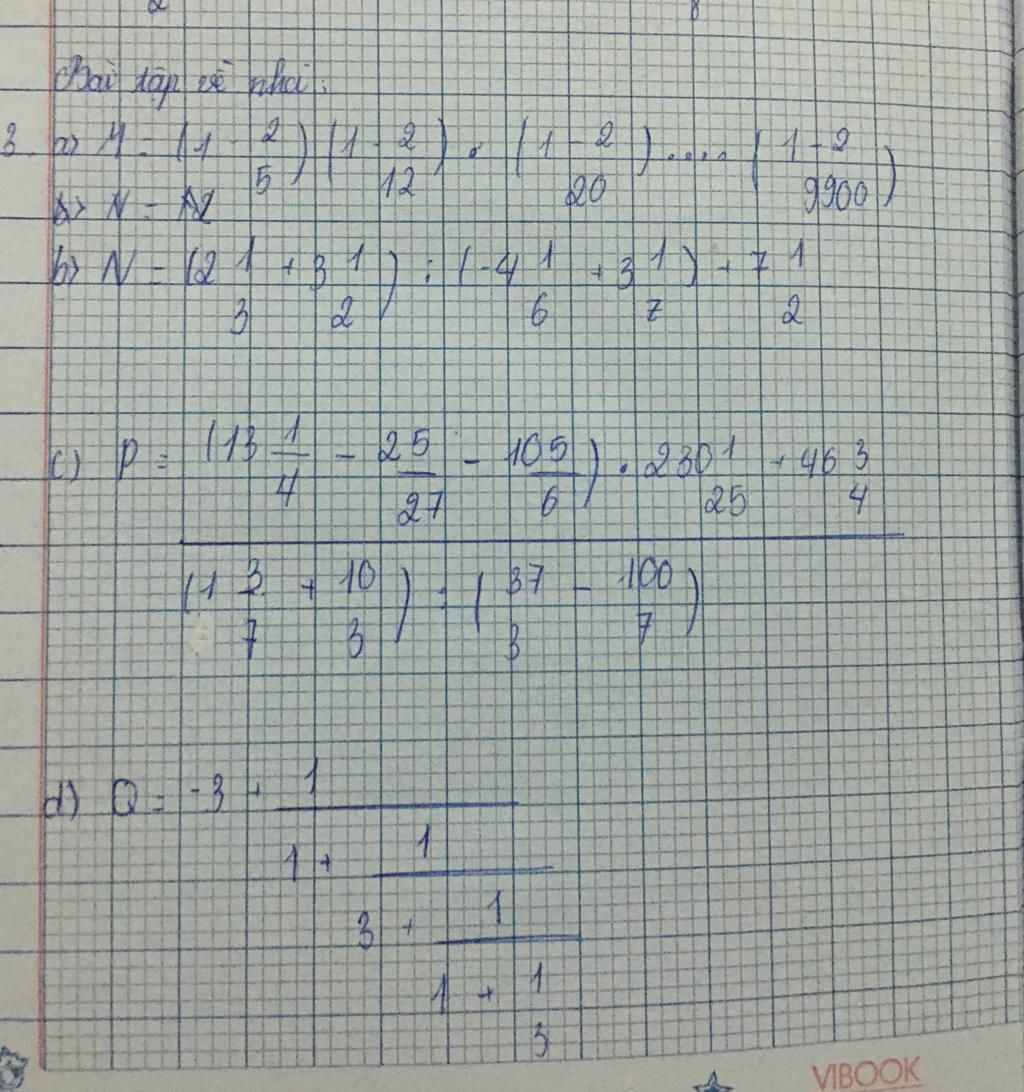 Bài tập về nhà:
3. a) M = (1 - 2/5)(1 - 2/12) . (1 - 2/20) .... (1 - 2/9900)
b) N = (2 1/3 + 3 1/2) : (-4 1/6 + 3 1/7) + 7 1/2
c) P = (13 1/4 - 2 5/27 - 10 5/6) . 230 1/25 + 46 3/4
(1 3/7 + 10/3) : (37/3 - 100/7)
d) Q = -3 + 1
1 + 1
3 + 1
1 + 1
3
VIBOOK